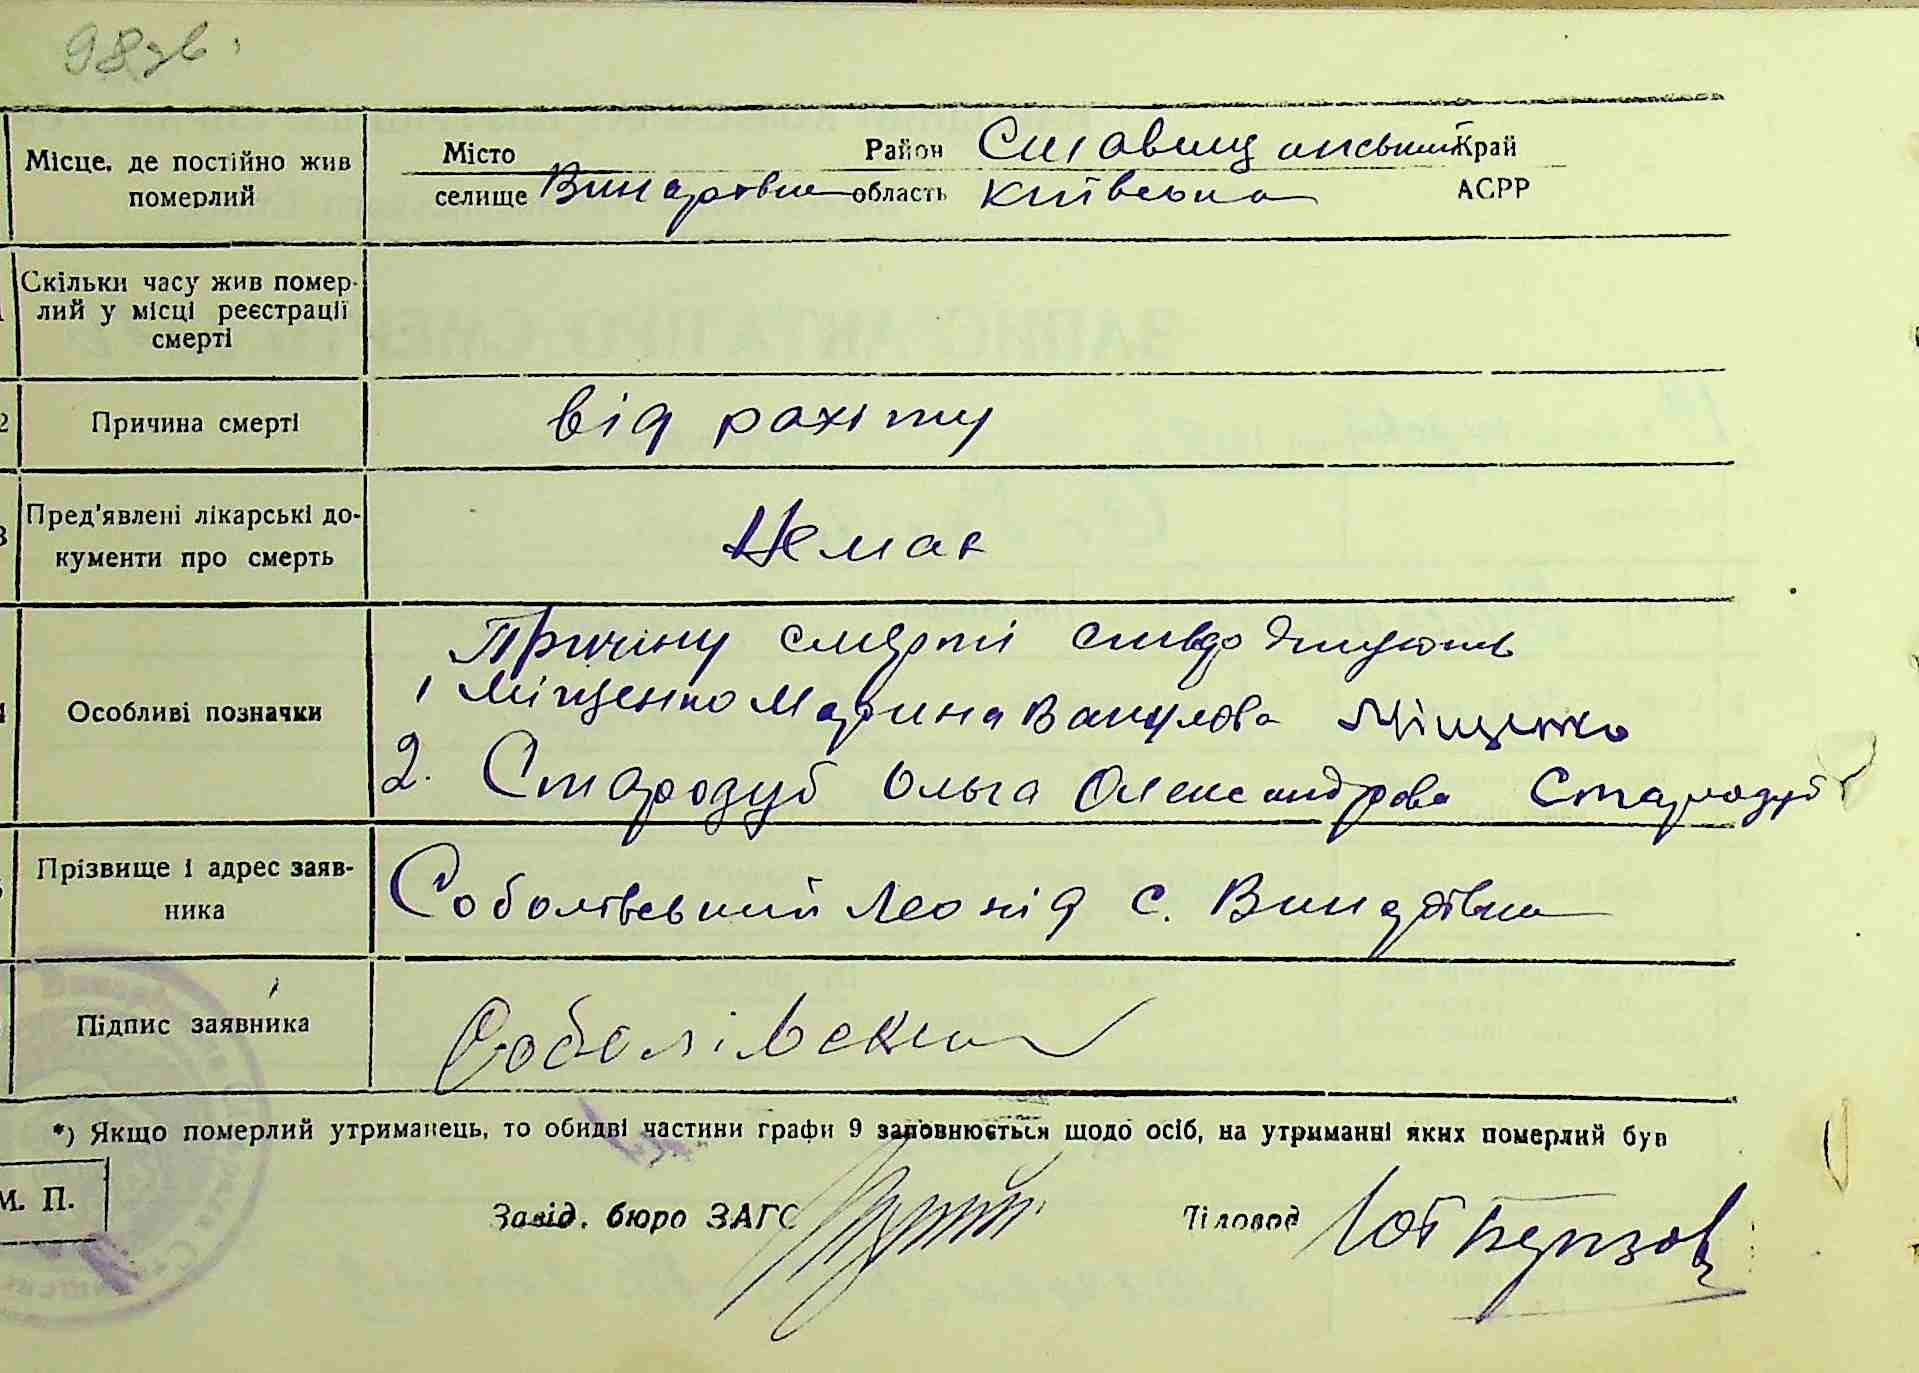 98 зв.
Місце, де постійно жив померлий
Місто Район Ставищанський Край
селище Винарівка область Київська АСРР
Скільки часу жив помер-
лий у місці реєстрації
смерті
2 Причина смерті від рахіту
3 Пред'явлені лікарські до-
кументи про смерть Немає
4 Особливі позначки
Причіну смерті
1 Міщенко Марина Вакулова Міщенко
2. Стародуб Ольга Олександрова Стародуб
Прізвище і адрес заяв-
ника Соболівський Леонід с. Винарівка
Підпис заявника Соболівский
*) Якщо померлий утриманець, то обидві частини графи 9 заповнюється щодо осіб, на утриманні яких померлий був
М. П.
Завід. бюро ЗАГС Діловод